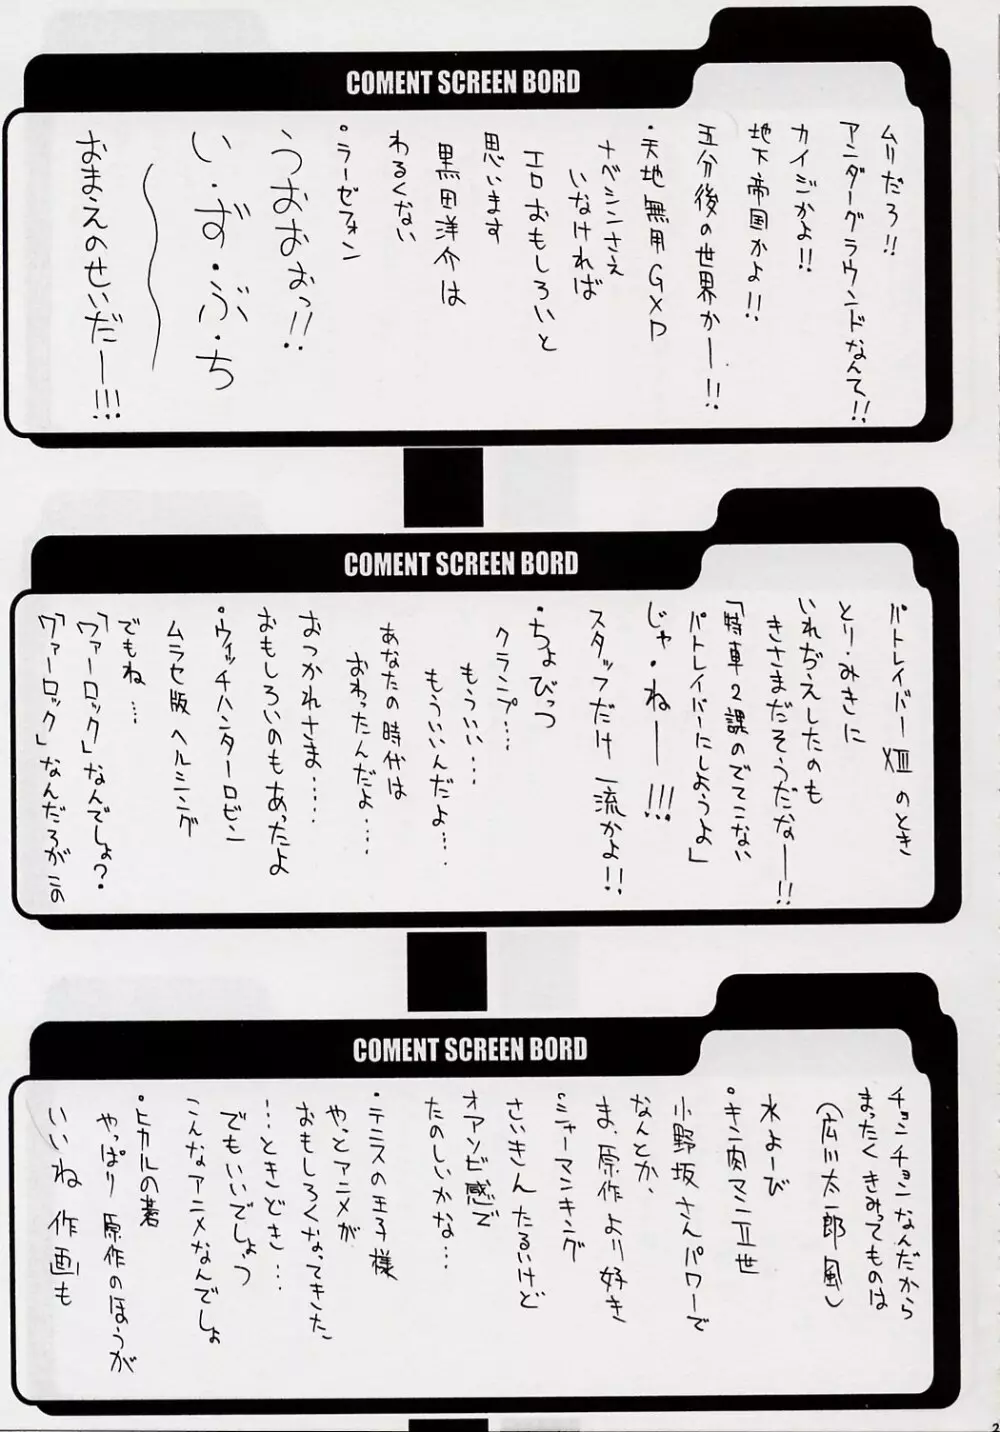 COMENT SCREEN BORD
ムリだろ!!
アンダーグラウンドなんて!!
カイジかよ!!
地下帝国かよ!!
五分後の世界かー!!
・天地無用GXP
ナベシンさえ
いなければ
エロおもしろいと
思います
黒田洋介は
わるくない
・ラーゼフォン
うおおぉっ!!
い・ず・ぶ・ち
おまえのせいだー!!!
COMENT SCREEN BORD
パトレイバーXIIIのとき
とり・みきに
いれぢえしたのも
きさまだそうだなー!!
「特車2課のでてこない
パトレイバーにしようよ」
じゃ・ねー!!!
スタッフだけ一流かよ!!
・ちょびっつ
クランプ…
もういい…
もういいんだよ…
あなたの時代は
おわったんだよ…
おつかれさま……
おもしろいのもあったよ
・ウィッチハンターロビン
ムラセ版ヘルシング
でもね…
「ワァーロック」なんでしょ?・
「ワァーロック」なんだろがこの
COMENT SCREEN BORD
チョンチョンなんだから
まったくきみってものは
(広川太一郎風)
水よーび
・キン肉マンII世
小野坂さんパワーで
なんとか、
ま、原作より好き
・シャーマンキング
さいきんたるいけど
オアソビ感で
たのしいかな…
・テニスの王子様
やっとアニメが
おもしろくなってきた、
…ときどき…
でもいいでしょっ
こんなアニメなんでしょ
・ヒカルの碁
やっぱり原作のほうが
いいね 作画も
2